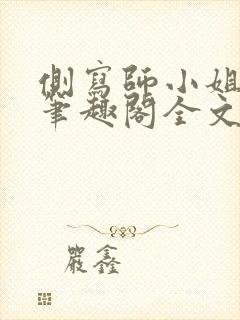 側寫師小姐
筆趣閣全文
嚴鑫